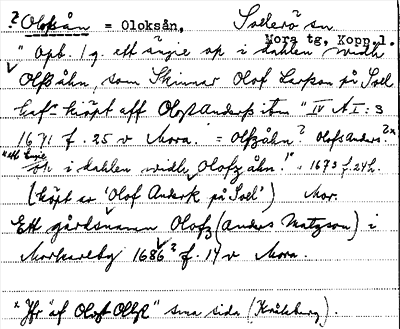 ? Oloksån = Oloksån, Sollerö sn.
Mora tg, Kopp.l.
" Opb. 1 g. ett ängie op i dahlen widh
Olfzåhn, som Skinnar Olof Larsson på Soll
haf- köpt aff Olof Anderss " IV A I : 3
1671 f. 25 v Mora. = Olfzåhn? Olofs Anders. ?x
" ett ängie op i dahlen widh Olofz åhn." 1673 f. 24 h.
(köpt av 'Olof Anderk på Soll') Mor.
Ett gårdsnamn Olofz (Anders Matzson) i
Morkarlby 1686 ? f. 14 v Mora.
x Jfr "af Olof Olfz" sma sida (Kråkberg).